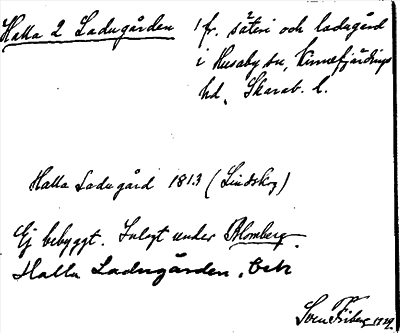 Halla 2 Ladugården 1 fr. säteri och ladugård
i Husaby sn, Kinnefjärdings
hd, Skarab. l.
Halla Ladugård 1813 (Lindskog)
Ej bebyggt. Inlagt under Blomberg.
Halla Ladugården,
Sven Friberg